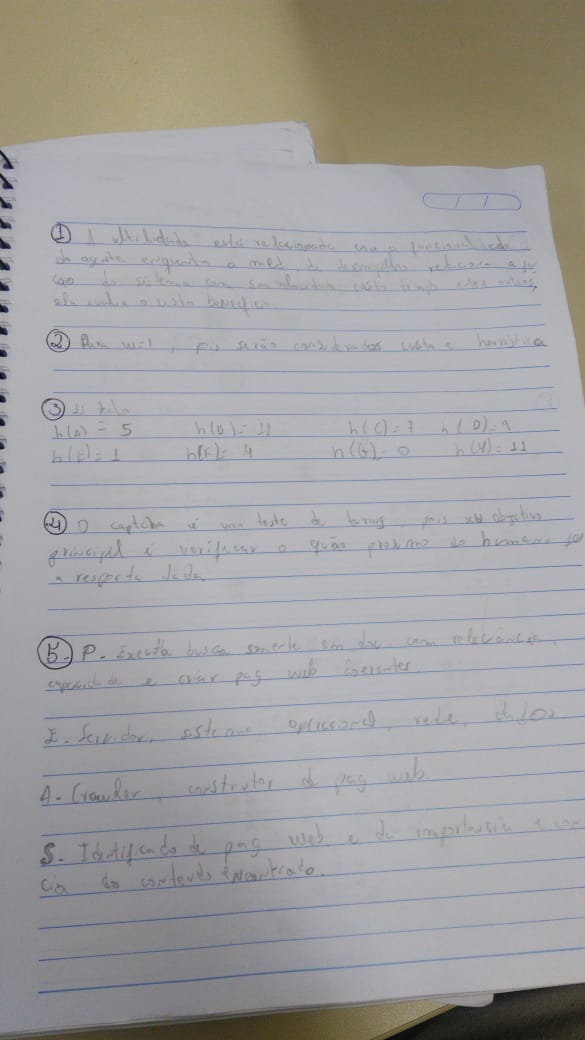 ① A ultilidade está relacionada com a funcionalidade
do agente enquanto a med. de desempenho relaciona a
ção do sistema com custo tempo entre outros,
ela avalia o custo benefício
② Para w=1, pois serão considerados custo e heurística
③
h(A) = 5 h(B) = 11 h(C) = 7 h(D) = 9
h(E) = 1 h(F) = 4 h(G) = 0 h(H) = 11
4 O captcha é um teste de turing, pois seu objetivo
principal é verificar o quão proximo do humano
a resposta dada.
5. P. Executa busca somente em doc com relevância,
capacidade e criar pag web coerentes
E. Servidor, sistema operacional, rede, dados
A. Crawler, construtor de pag web
S. Identificado de pag web e da importancia e
cia do conteudo encontrado.